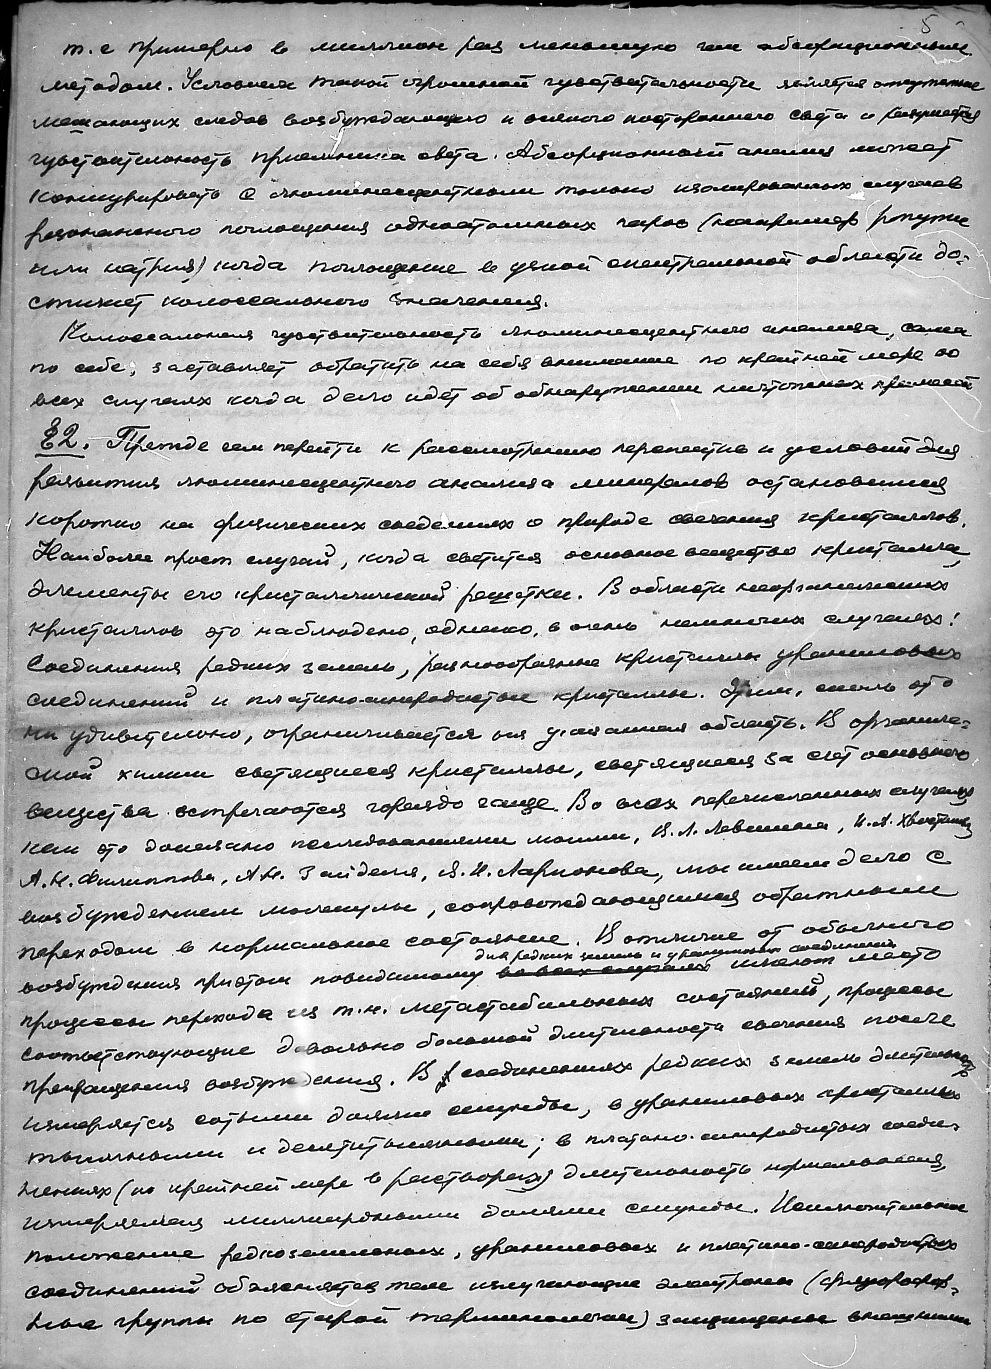 5
т.е примерно в миллион раз меньшую чем абсорционным
методом. Условием такой огромной чувствительности является отсутствие
мешающих следов возбуждающего и всякого постороннего света и
чувствительность приемника света. Абсорционный анализ может
конкурировать с люминесцентным только изолированных случаев
резонансного поглощения одноатомных паров (например ртути
или натрия) когда поглощение в узкой спектральной области до-
стигает колоссального значения.
Колоссальная чувствительность люминесцентного анализа, сама
по себе, заставляет обратить на себя внимание по крайней мере во
всех случаях когда дело идет об обнаружении ничтожных примесей
§2. Прежде чем перейти к рассмотрению перспектив и условий для
развития люминесцентного анализа минералов остановимся
коротко на физических сведениях о природе свечения кристаллов.
Наиболее прост случай, когда светится основное вещество кристалла,
элементы его кристаллической решетки. В области неорганических
кристаллов это наблюдено, однако, в очень немногих случаях:
Соединения редких земель, разнообразные кристаллы ураниловых
соединений и платино-синеродистые кристаллы. Этим, сколь это
ни удивительно, ограничивается вся указанная область. В органиче-
ской химии светящиеся кристаллы, светящиеся за счет основного
вещества встречаются гораздо чаще. Во всех перечисленных случаях
как это доказано исследованиями моими, В.Л. Левшина, И.А. Хвостикова
А.Н. Филиппова, А.Н. Зайделя, Я.И. Ларионова, мы имеем дело с
возбуждением молекулы, сопровождающимся обратным
переходом в нормальное состояние. В отличие от обычного
для редких земель и ураниловых соединений
возбуждения при этом повидимому во всех случаях имеют место
процессы перехода из т.н. метастабильных состояний, процессы
соответствующие довольно большой длительности свечения после
прекращения возбуждения. В соединениях редких земель длительность
измеряется сотыми долями секунды, в ураниловых кристаллах
тысячными и десятитысячными; в платино-синеродистых соеди-
нениях (по крайней мере в растворах) длительность нормальная,
измеряемая миллиардными долями секунды. Исключительное
положение редкоземельных, ураниловых и платино-синеродистых
соединений объясняется тем излучающие электроны (флуорофор-
ные группы по старой терминологии) защищены внешними